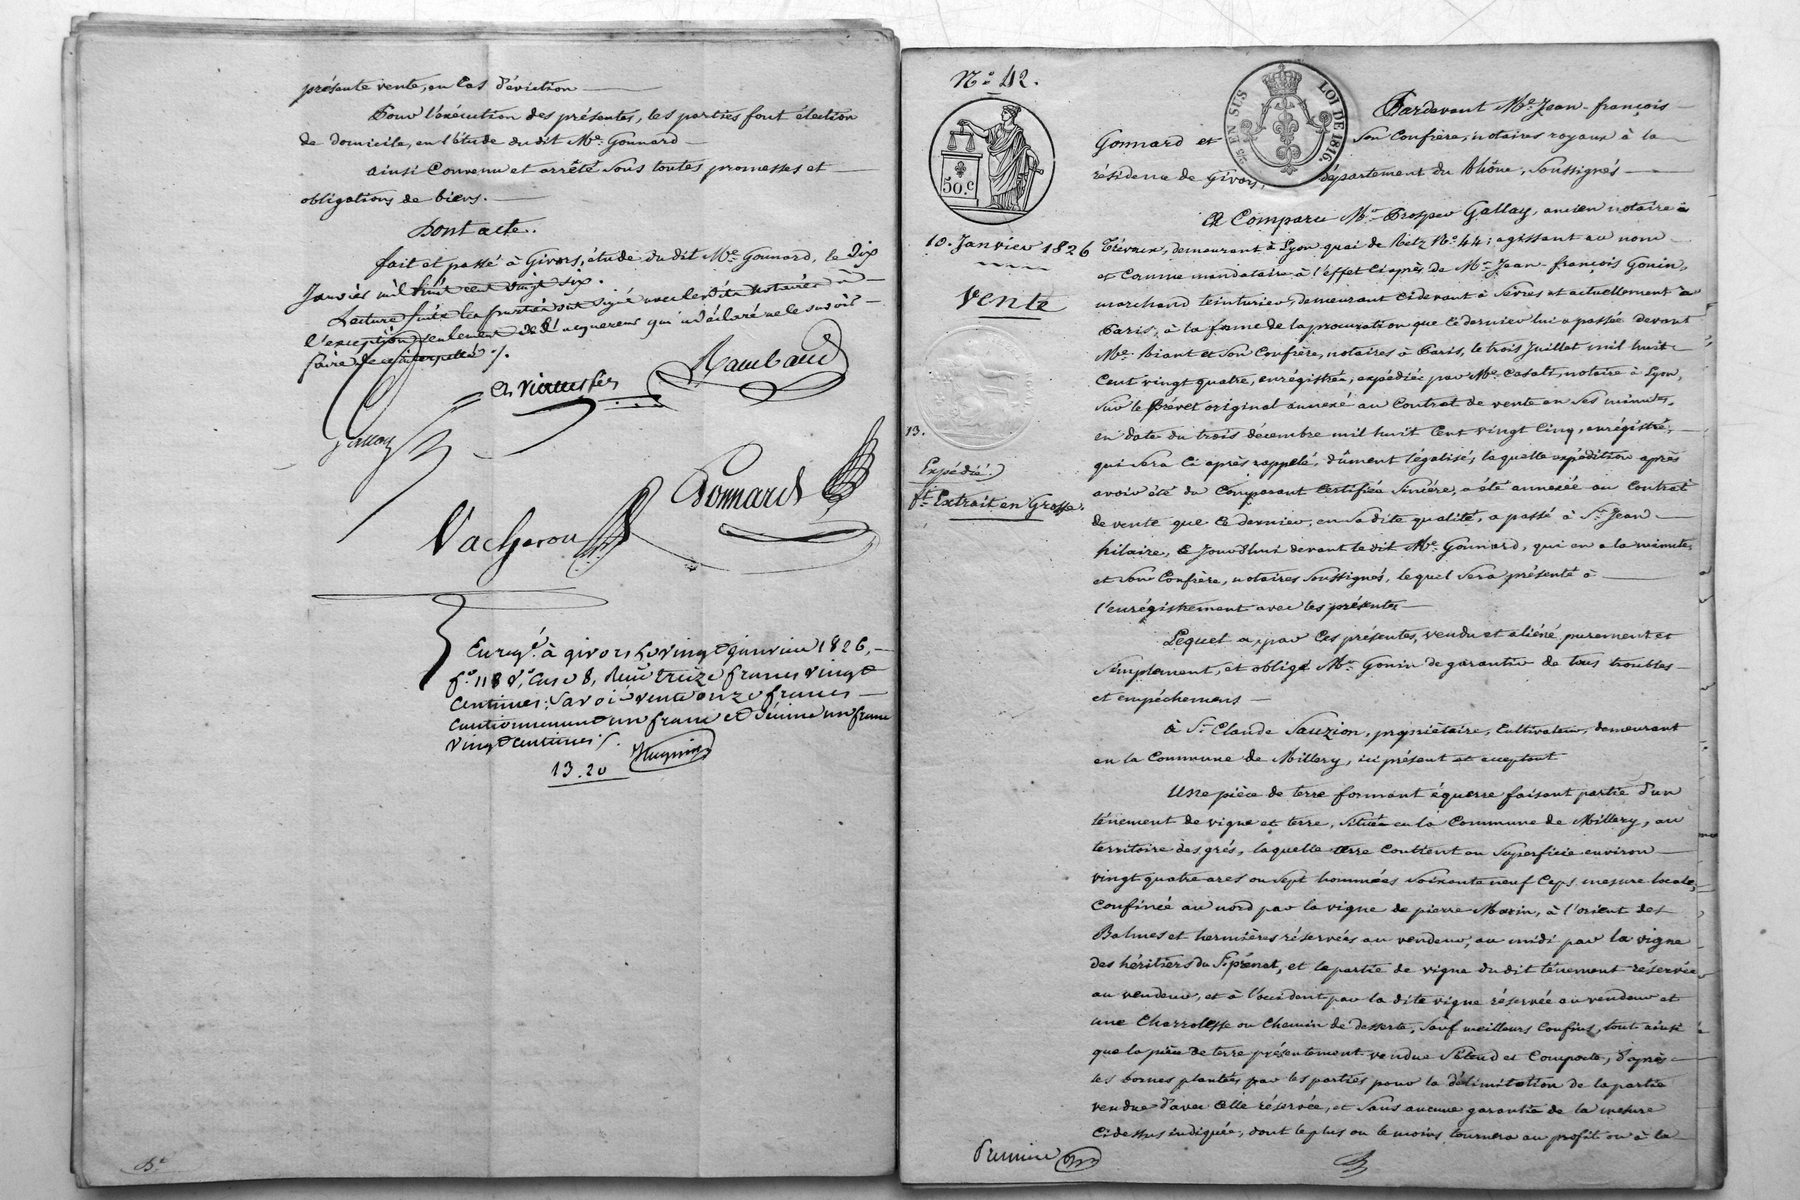 présente vente, en cas d'éviction
Pour l'exécution des présentes, les parties font élection
de domicile, en l'étude du dit Me. Gonnard
ainsi Convenu et arrêté sous toutes promesses et
obligations de biens.
Dont acte.
fait et passé à Givors, étude du dit Me. Gonnard, le Dix
Janvier mil huit cent vingt six.
Lecture faite les parties ont signé avec lesdits notaires à
l'exception seulement de l'acquereur qui a déclaré ne le savoir
faire de ce interpellé ./.
Rambaud
Gallay
Gonnard
Vacheron
Enregé. à givors Le vingt janvier 1826,
fo. 118 Vo. Case 8, Reçu treize francs vingt
Centimes; Savoir vente onze francs
Cautionnement un franc et Décime un franc
vingt centimes /.
13.20
No. 42.
50.c
EN SUS
LOI DE 1816.
10. Janvier 1826
Vente
13.
Expédié.
ft. Extrait en Grosse.
Pardevant Me. Jean-françois
Gonnard et Son Confrère, notaires royaux à la
résidence de Givors, département du Rhône, Soussignés
A Comparu Mr. Prosper Gallay, ancien notaire à
Trévoux, demeurant à Lyon quai de Retz No. 44; agissant au nom
et Comme mandataire à l'effet Ci après de Mr. Jean-françois Gonin,
marchand teinturier, demeurant ci devant à Sèvres et actuellement à
Paris, à la forme de la procuration que ce dernier lui a passée devant
Me. Riant et Son Confrère, notaires à Paris, le trois Juillet mil huit
Cent vingt quatre, enrégistrée, expédiée par Me. Casati, notaire à Lyon,
Sur le Brévet original annexé au Contrat de vente en Ses minutes,
en date du trois décembre mil huit Cent vingt Cinq, enrégistré,
qui Sera Ci après rappelé, dûment légalisé, laquelle expédition après
avoir été du Comparant Certifiée Sincère, a été annexée au Contrat
de vente que Ce dernier, en Sa dite qualité, a passé à St. Jean
hilaire, Ce Jourd'hui devant le dit Me. Gonnard, qui en a la minute,
et Son Confrère, notaires Soussignés, lequel Sera présenté à
l'enrégistrement avec les présentes
Lequel a, par Ces présentes, vendu et aliéné, purement et
Simplement, et obligé Mr. Gonin de garantir de tous troubles
et empêchemens
à Sr. Claude Sauzion, propriétaire, Cultivateur, demeurant
en la Commune de Millery, ici présent et acceptant
Une pièce de terre formant équerre faisant partie d'un
ténement de vigne et terre, Situé en la Commune de Millery, au
territoire des grés, laquelle terre Contient en Superficie environ
vingt quatre ares ou Sept hommées Soixante neuf Ceps mesure locale,
Confinée au nord par la vigne de pierre Morin, à l'orient des
Balmes et hermières réservées au vendeur, au midi par la vigne
des héritiers du Sr. prénat, et la partie de vigne du dit ténement réservée
au vendeur, et à l'occident par la dite vigne réservée au vendeur et
une Charrolesse ou Chemin de desserte, Sauf meilleurs Confins, tout ainsi
que la pièce de terre présentement vendue S'étend et Comporte, d'après
les bornes plantées par les parties pour la délimitation de la partie
vendue d'avec Celle réservée, et Sans aucune garantie de la mesure
Ci dessus indiquée, dont le plus ou le moins tournera au profit ou à la
Première